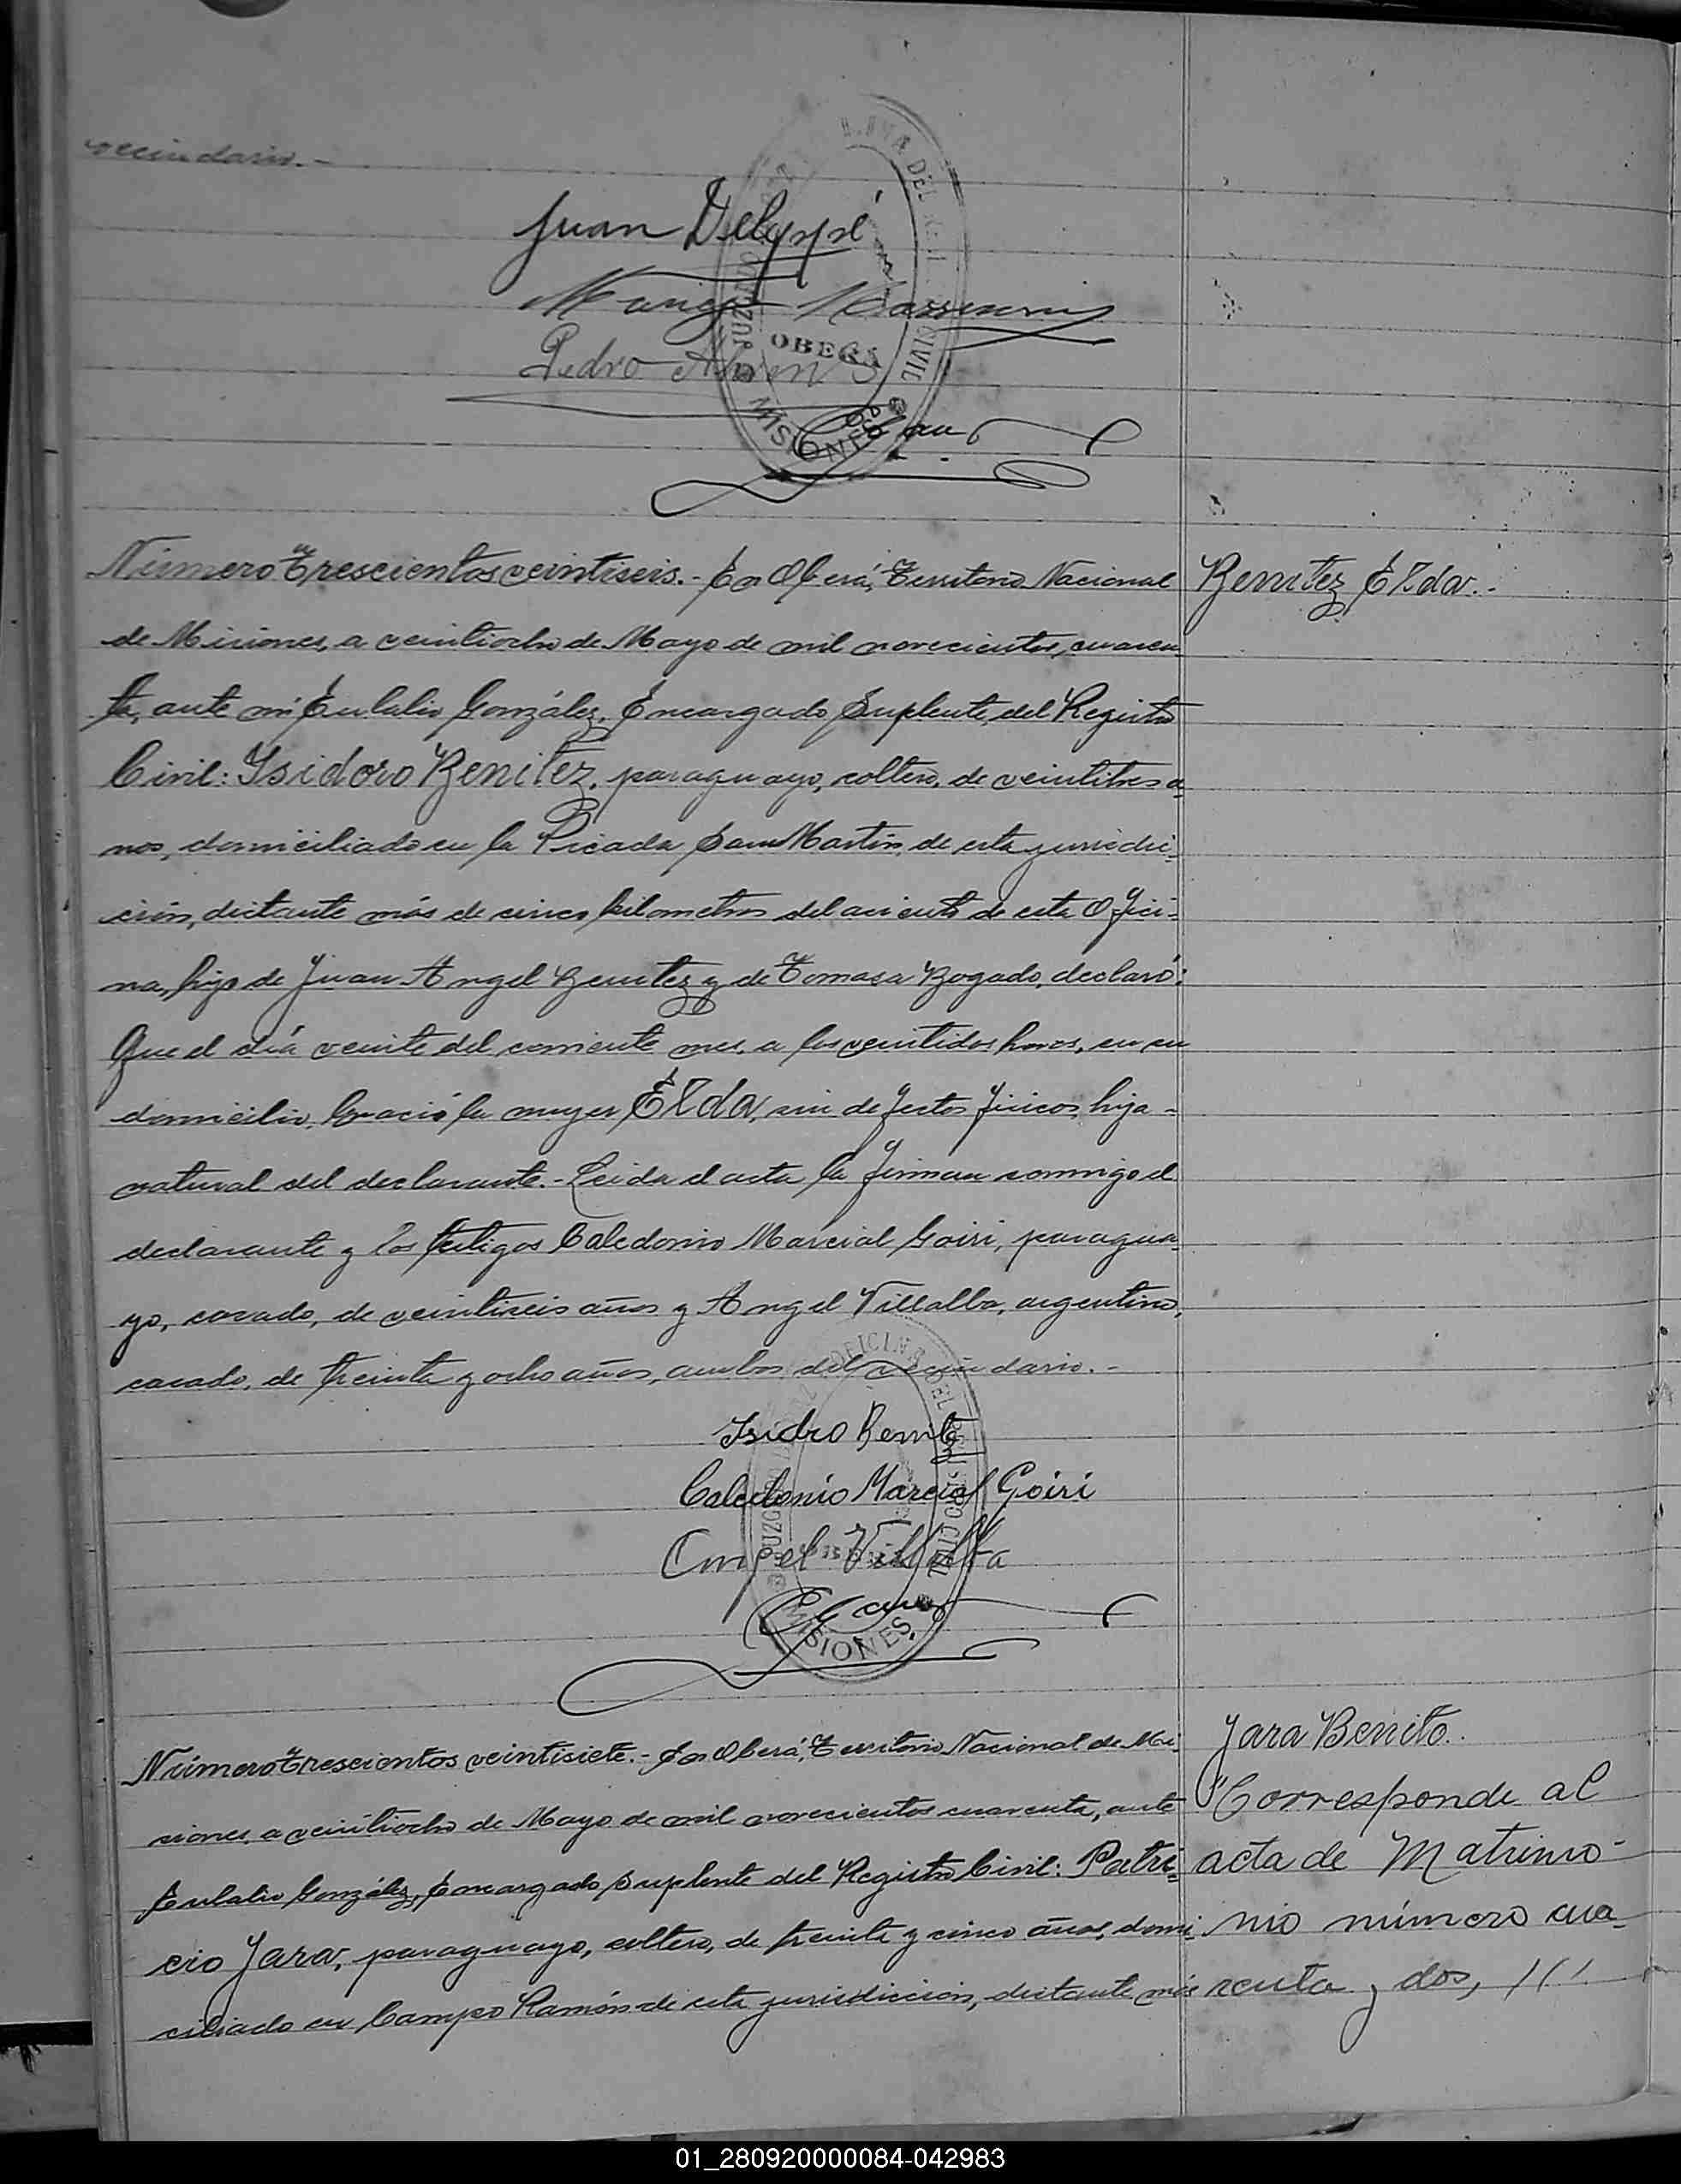 vecindario.-
Juan Delyypé
Pedro Ahrens
OBERÁ
MISIONES
Número Trescientos veintiseis.- En Oberá, Territorio Nacional
Benitez Elda.-
de Misiones, a veintiocho de Mayo de mil novecientos cuaren-
ta, ante mi Eulalio González, Encargado Suplente del Registro
Civil: Isidoro Benitez, paraguayo, soltero, de veintitres a-
nos, domiciliado en la Picada San Martín, de esta jurisdic-
ción, distante más de cinco kilometros del asiento de esta Ofici-
na, hijo de Juan Angel Benitez y de Tomasa Bogado, declaró:
Que el día veinte del corriente mes, a las veintidos horas, en su
domicilio, nació la mujer Elda, sin defectos fisicos, hija
natural del declarante.- Leida el acta la firman conmigo el
declarante y los testigos Caledonio Marcial Goiri, paragua-
yo, casado, de veintiseis años y Angel Villalba, argentino,
casado, de treinta y ocho años, ambos del vecindario.-
Isidro Benitez
Caledonio Marcial Goiri
Angel Villalba
MISIONES
Número Trescientos veintisiete.- En Oberá, Territorio Nacional de Mi-
Jara Benito.
siones, a veintiocho de Mayo de mil novecientos cuarenta, ante
"Corresponde al
Eulalio González, Encargado Suplente del Registro Civil: Patri-
acta de Matrimo-
cio Jara, paraguayo, soltero, de treinta y cinco años, domi-
nio número cua-
ciliado en Campo Ramón de esta jurisdiccion, distante más
renta y dos, ///
01_280920000084-042983